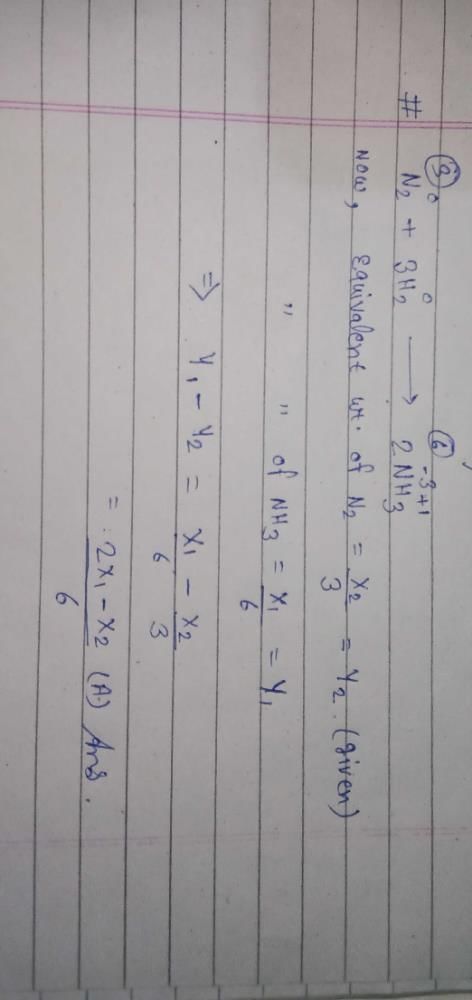 ③ ⑥
# N₂⁰ + 3H₂⁰ ⟶ 2N⁻³H₃⁺¹
Now, Equivalent wt. of N₂ = x₂/3 = Y₂. (given)
" " of NH₃ = x₁/6 = Y₁
⇒ Y₁ - Y₂ = x₁/6 - x₂/3
= 2x₁ - x₂/6 (A) Ans.